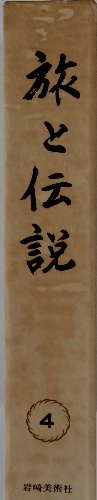 旅と伝説
4
岩崎美術社